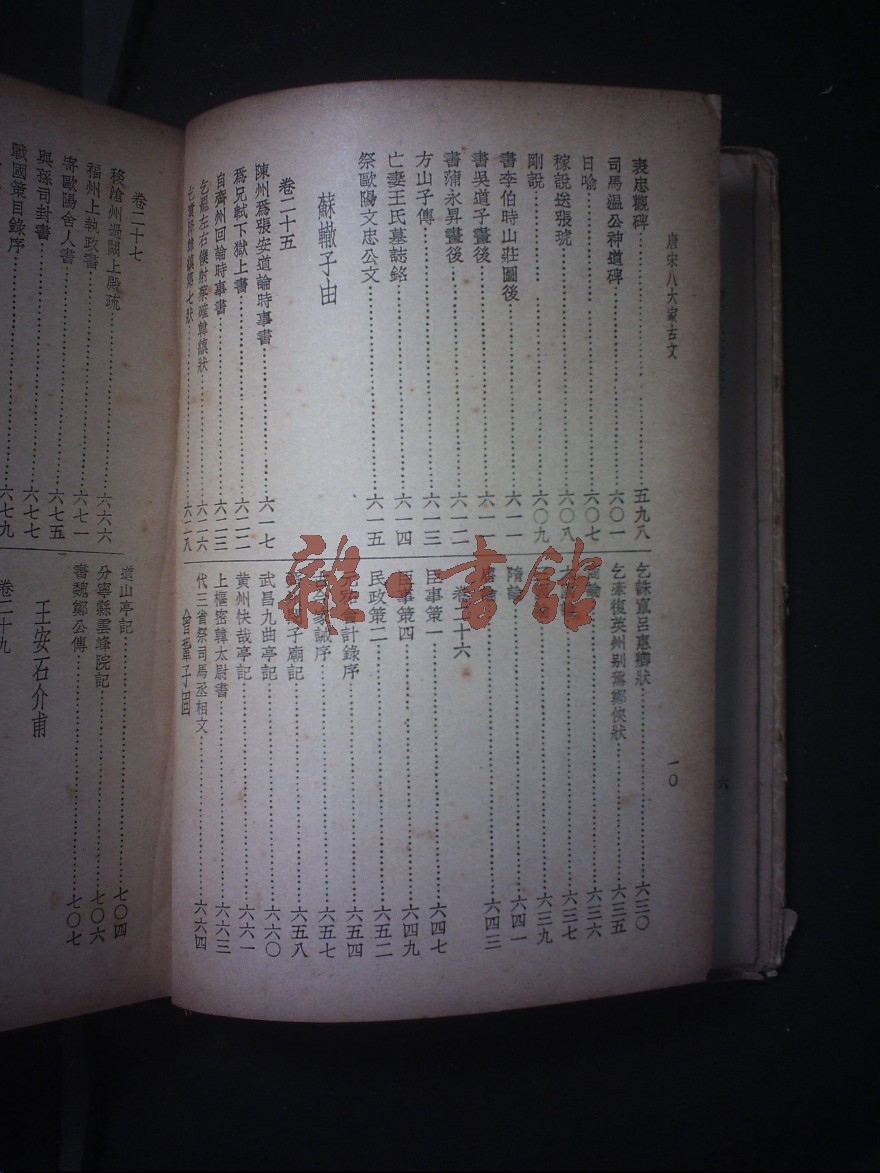 唐宋八大家古文
一〇
表忠觀碑 五九八
司馬溫公神道碑 六〇一
日喻 六〇七
稼說送張琥 六〇八
剛說 六〇九
書李伯時山莊圖後 六一一
書吳道子畫後 六一一
書蒲永昇畫後 六一二
方山子傳 六一三
亡妻王氏墓誌銘 六一四
祭歐陽文忠公文 六一五
蘇轍子由
卷二十五
陳州爲張安道論時事書 六一七
爲兄軾下獄上書 六二二
自齊州回論時事書 六二三
乞罷左右僕射蔡確韓縝狀 六二六
六二八
乞誅竄呂惠卿狀 六三〇
乞牽復英州別駕鄭俠狀 六三五
論 六三六
六三七
六三九
隋論 六四一
唐論 六四三
卷二十六
臣事策一 六四七
臣事策四 六四九
民政策二 六五二
計錄序 六五四
家誡序 六五七
子廟記 六五八
武昌九曲亭記 六六〇
黃州快哉亭記 六六一
上樞密韓太尉書 六六三
代三省祭司馬丞相文 六六四
曾鞏子固
卷二十七
移滄州過闕上殿疏 六六六
福州上執政書 六七一
寄歐陽舍人書 六七五
與孫司封書 六七七
戰國策目錄序 六七九
道山亭記 七〇四
分寧縣雲峰院記 七〇六
書魏鄭公傳 七〇七
王安石介甫
卷二十九
六
雜·書館